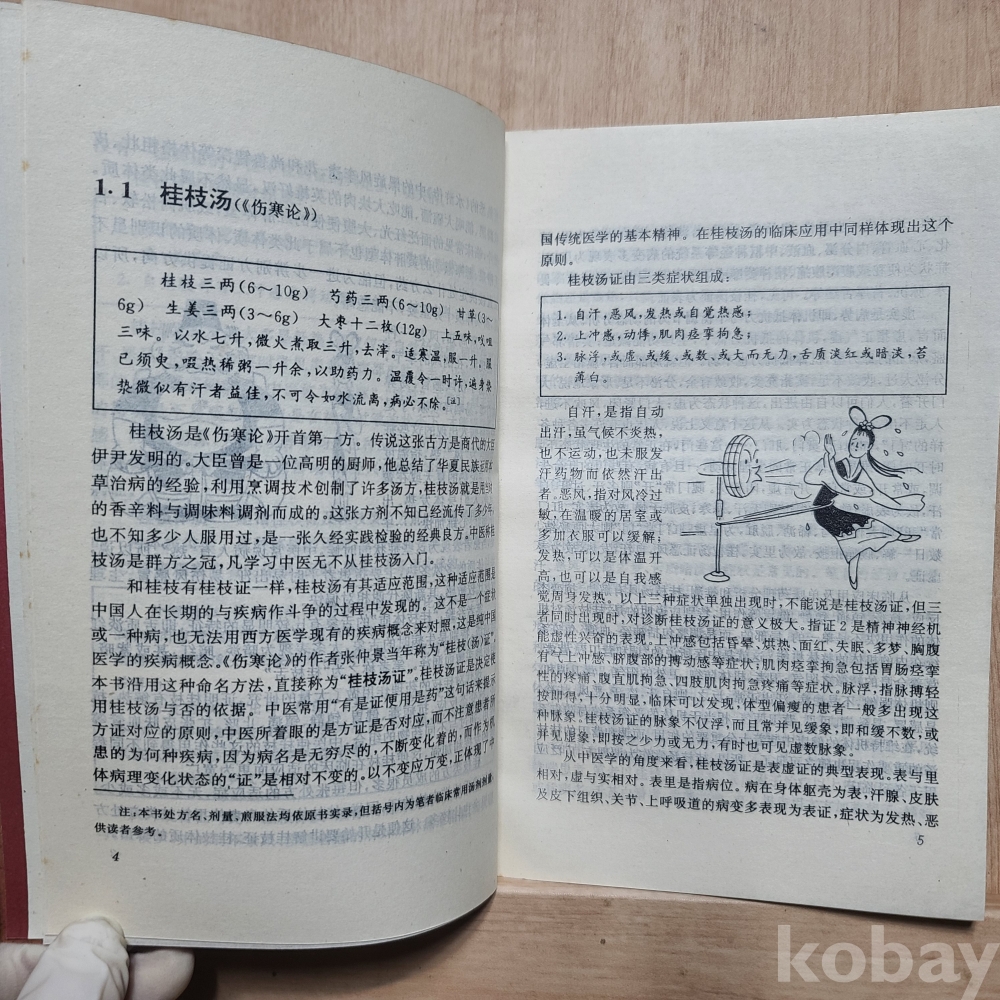 1.1 桂枝汤(《伤寒论》)
桂枝三两(6～10g) 芍药三两(6～10g) 甘草(3～
6g) 生姜三两(3～6g) 大枣十二枚(12g) 上五味,㕮咀
三味。以水七升,微火煮取三升,去滓。适寒温,服一升,服
已须臾,啜热稀粥一升余,以助药力。温覆令一时许,遍身漐
漐微似有汗者益佳,不可令如水流离,病必不除。[注]
桂枝汤是《伤寒论》开首第一方。传说这张古方是商代的大臣
伊尹发明的。大臣曾是一位高明的厨师,他总结了华夏民族运用本
草治病的经验,利用烹调技术创制了许多汤方,桂枝汤就是用当时
的香辛料与调味料调剂而成的。这张方剂不知已经流传了多少年,
也不知多少人服用过,是一张久经实践检验的经典良方。中医称桂
枝汤是群方之冠,凡学习中医无不从桂枝汤入门。
和桂枝有桂枝证一样,桂枝汤有其适应范围,这种适应范围是
中国人在长期的与疾病作斗争的过程中发现的。这不是一个症状
或一种病,也无法用西方医学现有的疾病概念来对照,这是纯中国
医学的疾病概念。《伤寒论》的作者张仲景当年称为“桂枝(汤)证”,
本书沿用这种命名方法,直接称为“桂枝汤证”。桂枝汤证是决定使
用桂枝汤与否的依据。中医常用“有是证便用是药”这句话来提示
方证对应的原则,中医所着眼的是方证是否对应,而不注意患者所
患的为何种疾病,因为病名是无穷尽的,不断变化着的,而作为机
体病理变化状态的“证”是相对不变的。以不变应万变,正体现了中
注:本书处方名、剂量,煎服法均依原书实录,但括号内为笔者临床常用汤剂剂量,
供读者参考。
4
国传统医学的基本精神。在桂枝汤的临床应用中同样体现出这个
原则。
桂枝汤证由三类症状组成:
1. 自汗,恶风,发热或自觉热感;
2. 上冲感,动悸,肌肉痉挛拘急;
3. 脉浮,或虚,或缓,或数,或大而无力,舌质淡红或暗淡,苔
薄白。
自汗,是指自动
出汗,虽气候不炎热,
也不运动,也未服发
汗药物而依然汗出
者。恶风,指对风冷过
敏,在温暖的居室或
多加衣服可以缓解,
发热,可以是体温升
高,也可以是自我感
觉周身发热。以上三种症状单独出现时,不能说是桂枝汤证,但三
者同时出现时,对诊断桂枝汤证的意义极大。指证2是精神神经机
能虚性兴奋的表现。上冲感包括昏晕、烘热、面红、失眠、多梦、胸腹
有气上冲感、脐腹部的搏动感等症状;肌肉痉挛拘急包括胃肠痉挛
性的疼痛、腹直肌拘急、四肢肌肉拘急疼痛等症状。脉浮,指脉搏轻
按即得,十分明显,临床可以发现,体型偏瘦的患者一般多出现这
种脉象。桂枝汤证的脉象不仅浮,而且常并见缓象,即和缓不数,或
并见虚象,即按之少力或无力,有时也可见虚数脉象。
从中医学的角度来看,桂枝汤证是表虚证的典型表现。表与里
相对,虚与实相对。表里是指病位。病在身体躯壳为表,汗腺、皮肤
及皮下组织、关节、上呼吸道的病变多表现为表证,症状为发热、恶
5
kobay